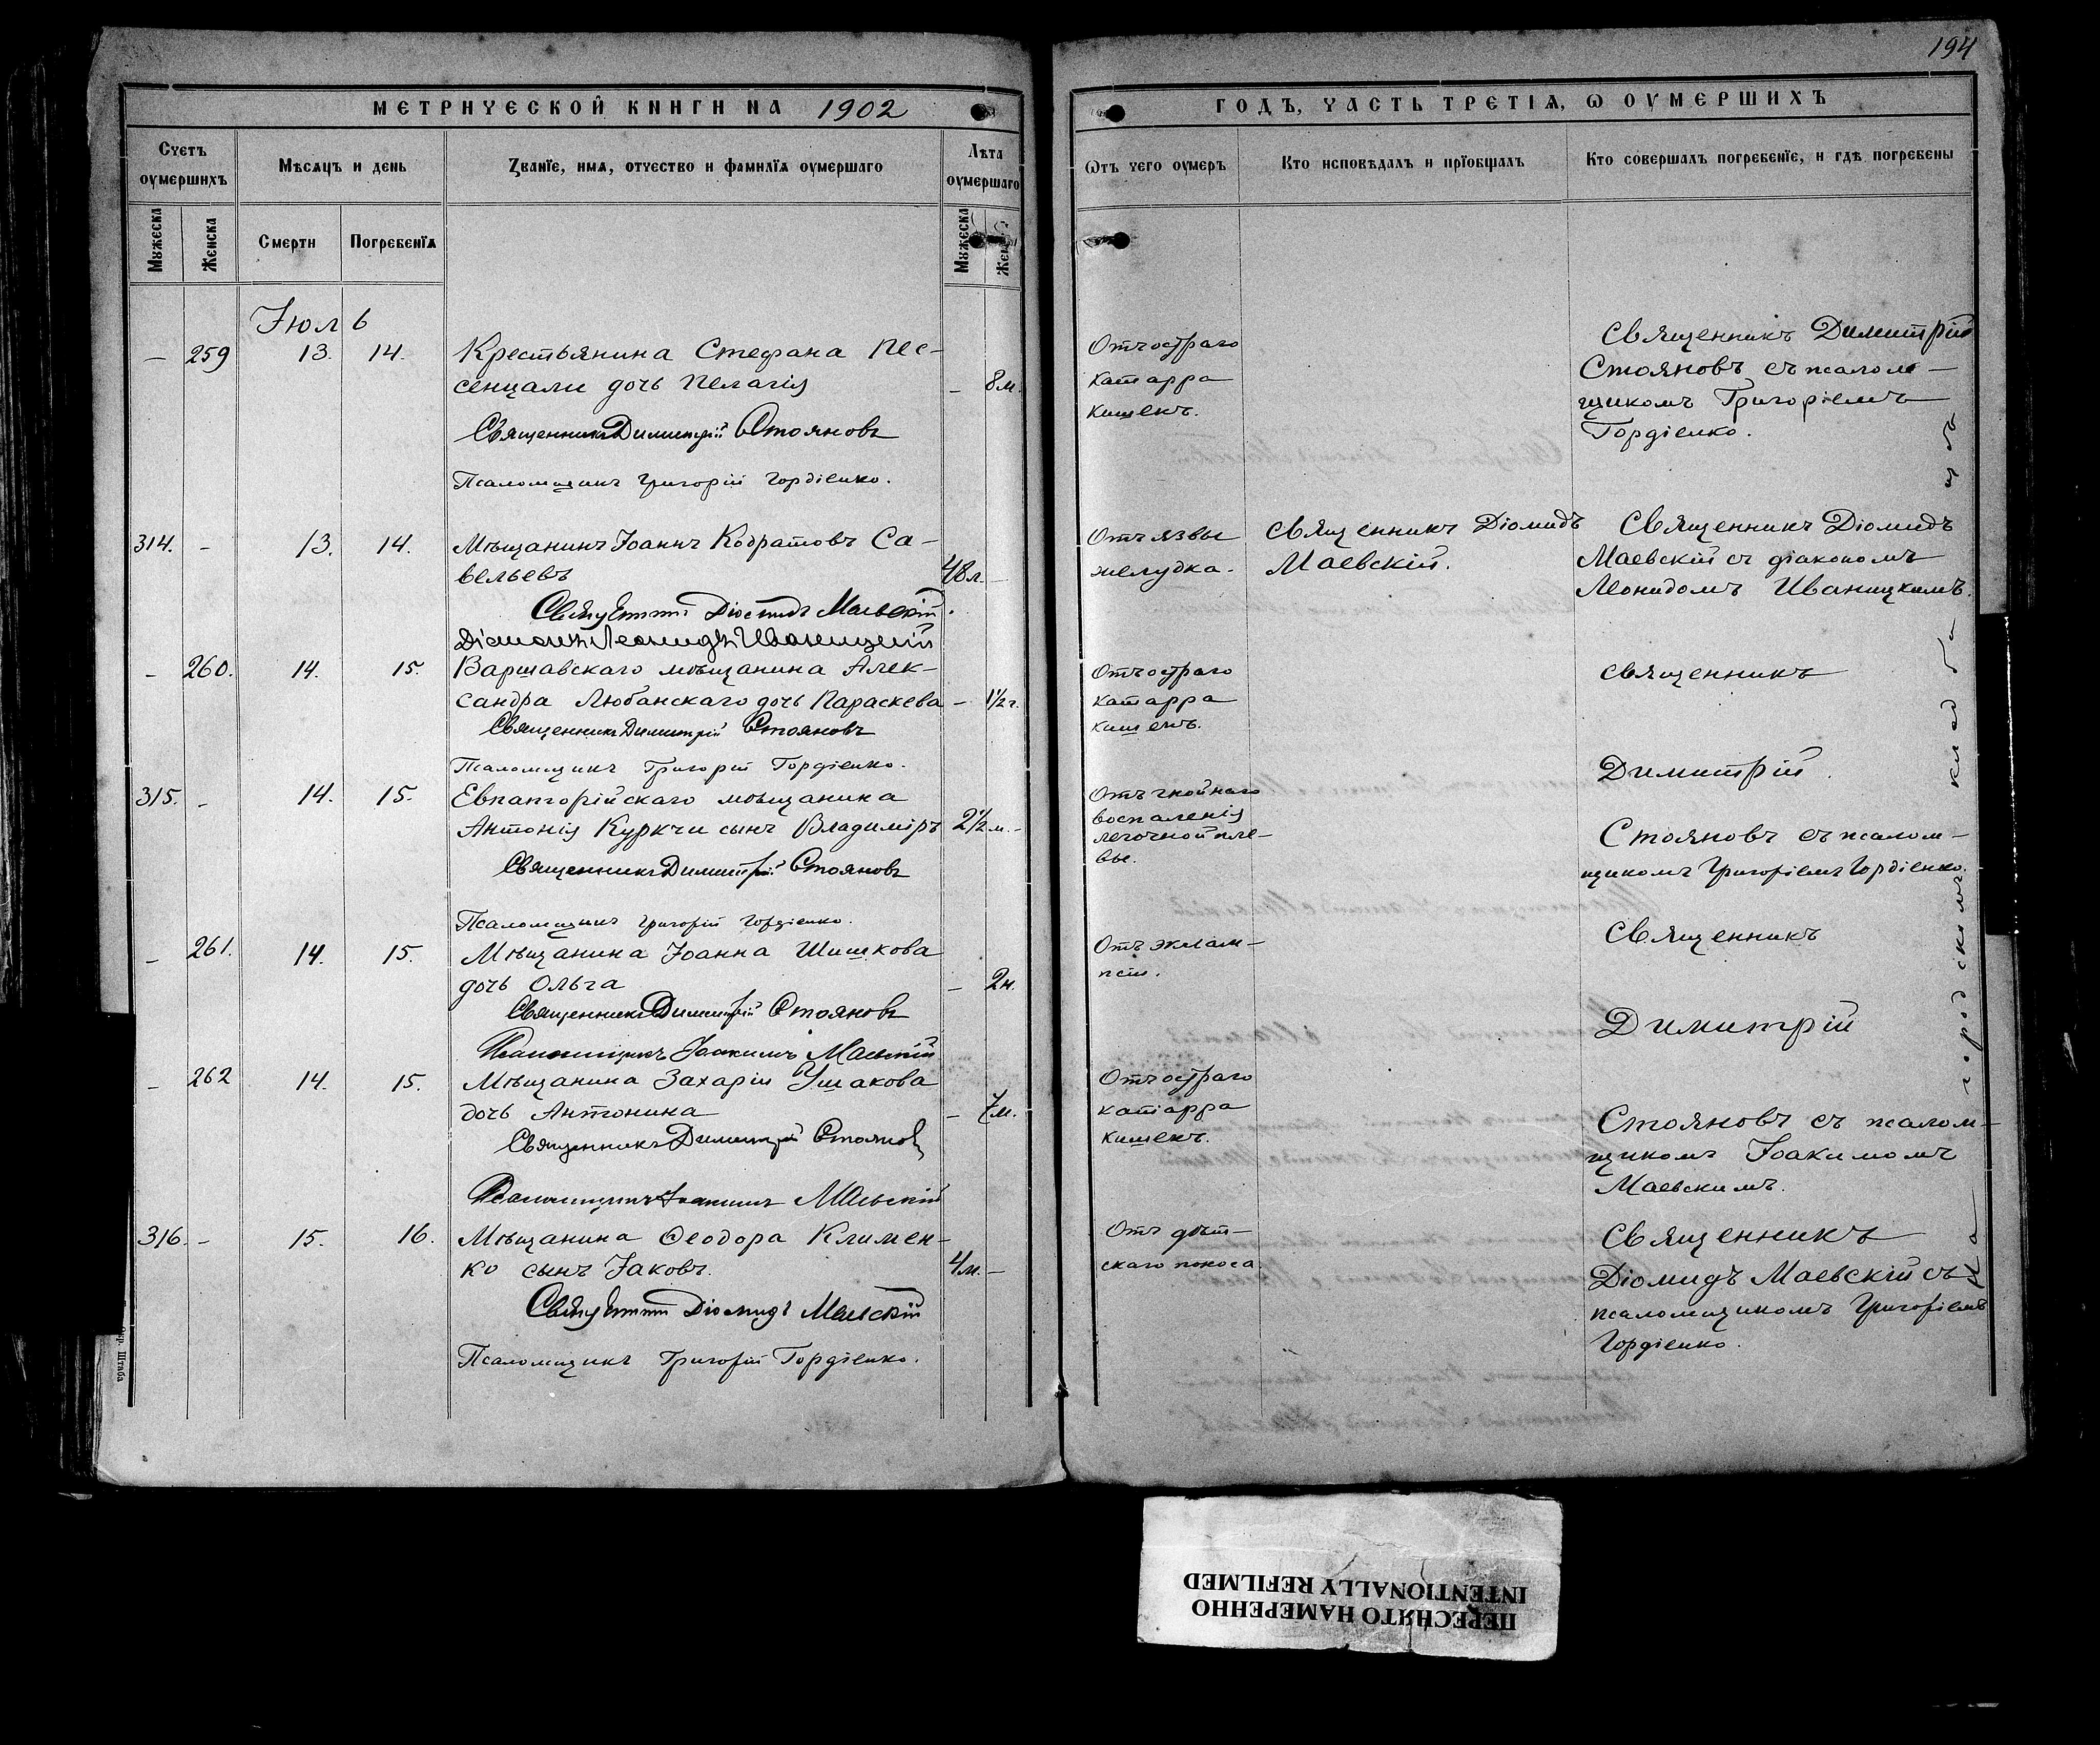 194
МЕТРИЧЕСКОЙ КНИГИ НА 1902
ГОДЪ, ЧАСТЬ ТРЕТІѦ, Ѡ ОУМЕРШИХЪ
Счетъ оумершихъ
Мѣсяцъ и день
Званїе, имѧ, отчество и фамилїѧ оумершаго
Лѣта оумершаго
Ѿтъ чего оумеръ
Кто исповѣдалъ и прїобщалъ
Кто совершалъ погребенїе, и гдѣ погребены
Мꙋжеска
Женска
Смерти
Погребенїѧ
Мꙋжеска
Іюль
— 259 13. 14. Крестьянина Стефана Пес-
сенцали дочь Пелагія — 8 м.
Священникъ Димитрій Стояновъ
Псаломщикъ Григорій Гордіенко.
Отъ остраго
катарра
кишекъ.
Священникъ Димитрій
Стояновъ съ псалом-
щикомъ Григоріемъ
Гордіенко.
314. - 13. 14. Мѣщанинъ Іоаннъ Кодратовъ Са-
вельевъ 48 л. —
Священникъ Діомидъ Маевскій.
Діаконъ Леонидъ Иваницкій
Отъ язвы
желудка.
Священникъ Діомидъ
Маевскій.
Священникъ Діомидъ
Маевскій съ діакономъ
Леонидомъ Иваницкимъ.
- 260. 14. 15. Варшавскаго мѣщанина Алек-
сандра Любанскаго дочь Параскева — 1½ г.
Священникъ Димитрій Стояновъ
Псаломщикъ Григорій Гордіенко.
Отъ остраго
катарра
кишекъ.
священникъ
315. - 14. 15. Евпаторійскаго мѣщанина
Антонія Куркчи сынъ Владиміръ 2½ м. -
Священникъ Димитрій Стояновъ
Псаломщикъ Григорій Гордіенко.
Отъ гнойнаго
воспаленія
легочной пле-
вы.
Димитрій
Стояновъ съ псалом-
щикомъ Григоріемъ Гордіенко.
- 261. 14. 15. Мѣщанина Іоанна Шишкова
дочь Ольга — 2 н.
Священникъ Димитрій Стояновъ
Псаломщикъ Іоакимъ Маевскій
Отъ эклам-
псіи.
Священникъ
Димитрій
- 262 14. 15. Мѣщанина Захаріи Ушакова
дочь Антонина — 7 м.
Священникъ Димитрій Стояновъ
Псаломщикъ Іоакимъ Маевскій
Отъ остраго
катарра
кишекъ.
Стояновъ съ псалом-
щикомъ Іоакимомъ
Маевскимъ.
316. - 15. 16. Мѣщанина Ѳеодора Климен-
ко сынъ Іаковъ. 4 м. —
Священникъ Діомидъ Маевскій
Псаломщикъ Григорій Гордіенко.
Отъ дѣт-
скаго поноса
Священникъ
Діомидъ Маевскій съ
псаломщикомъ Григоріемъ
Гордіенко.
На городскомъ кладбищѣ
Штаба
ПЕРЕСНЯТО НАМЕРЕННО
INTENTIONALLY REFILMED